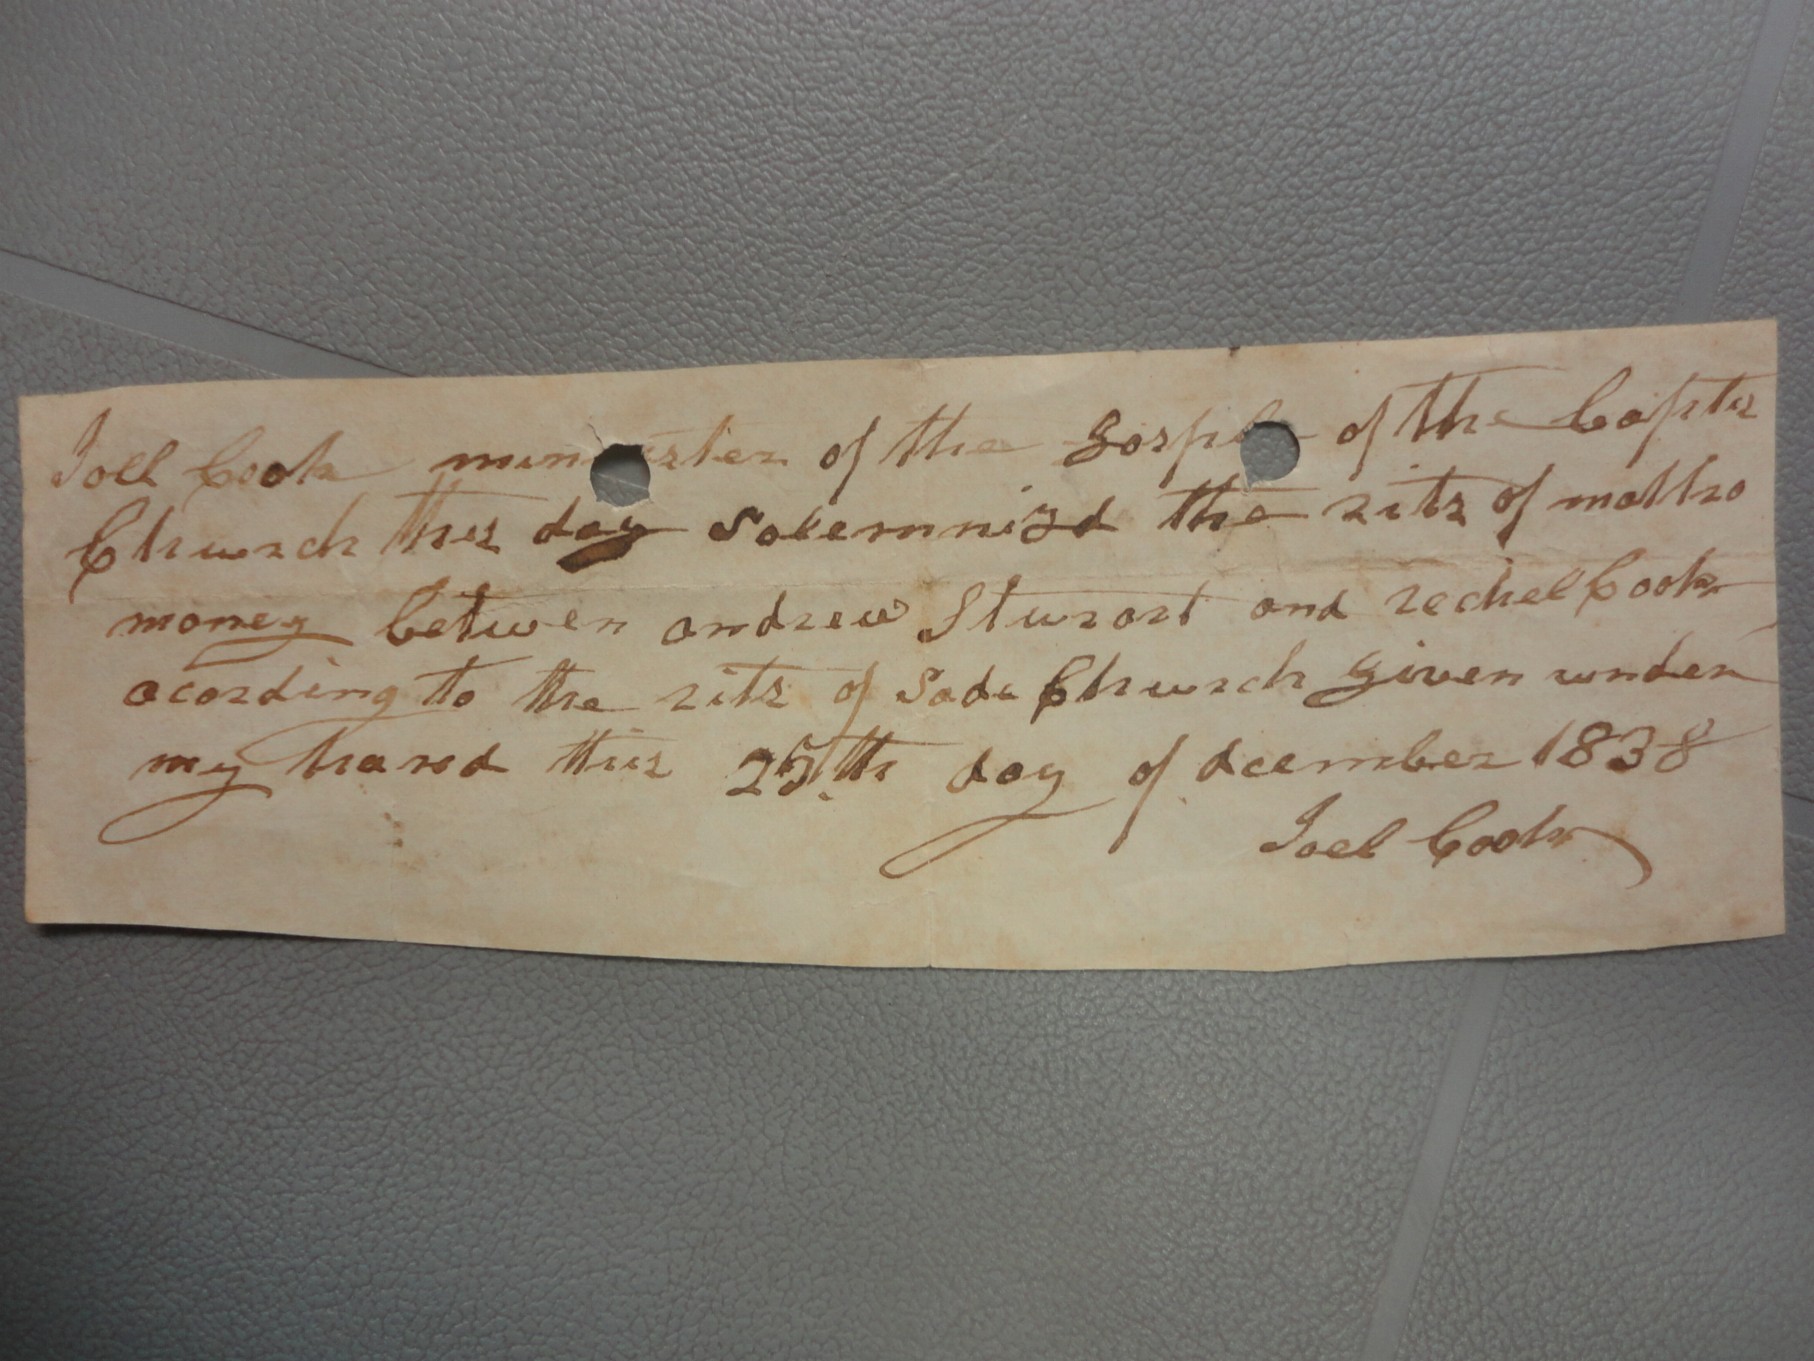 Joel Cook minister of the gospel of the baptis
Church this day Solemnizd the rits of mattra
money betwen andrew Sturart and rechel Cook
acording to the rits of Sade Church given under
my hand this 25th day of dcember 1838
Joel Cook